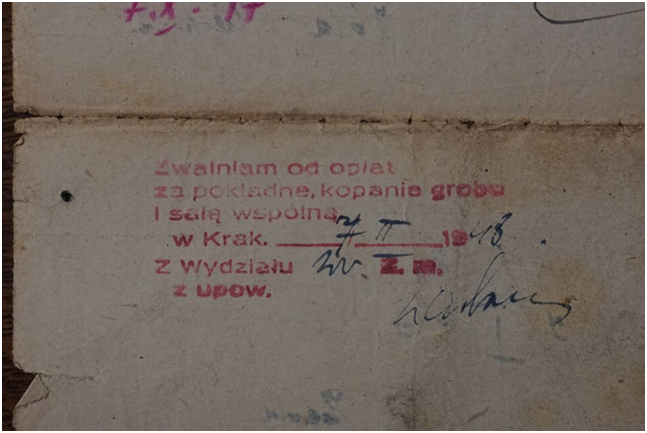 Zwalniam od opłat
za pokładne, kopanie grobu
i salę wspólną,
w Krak. 7 II 1948.
Z Wydziału Z. m.
z upow.